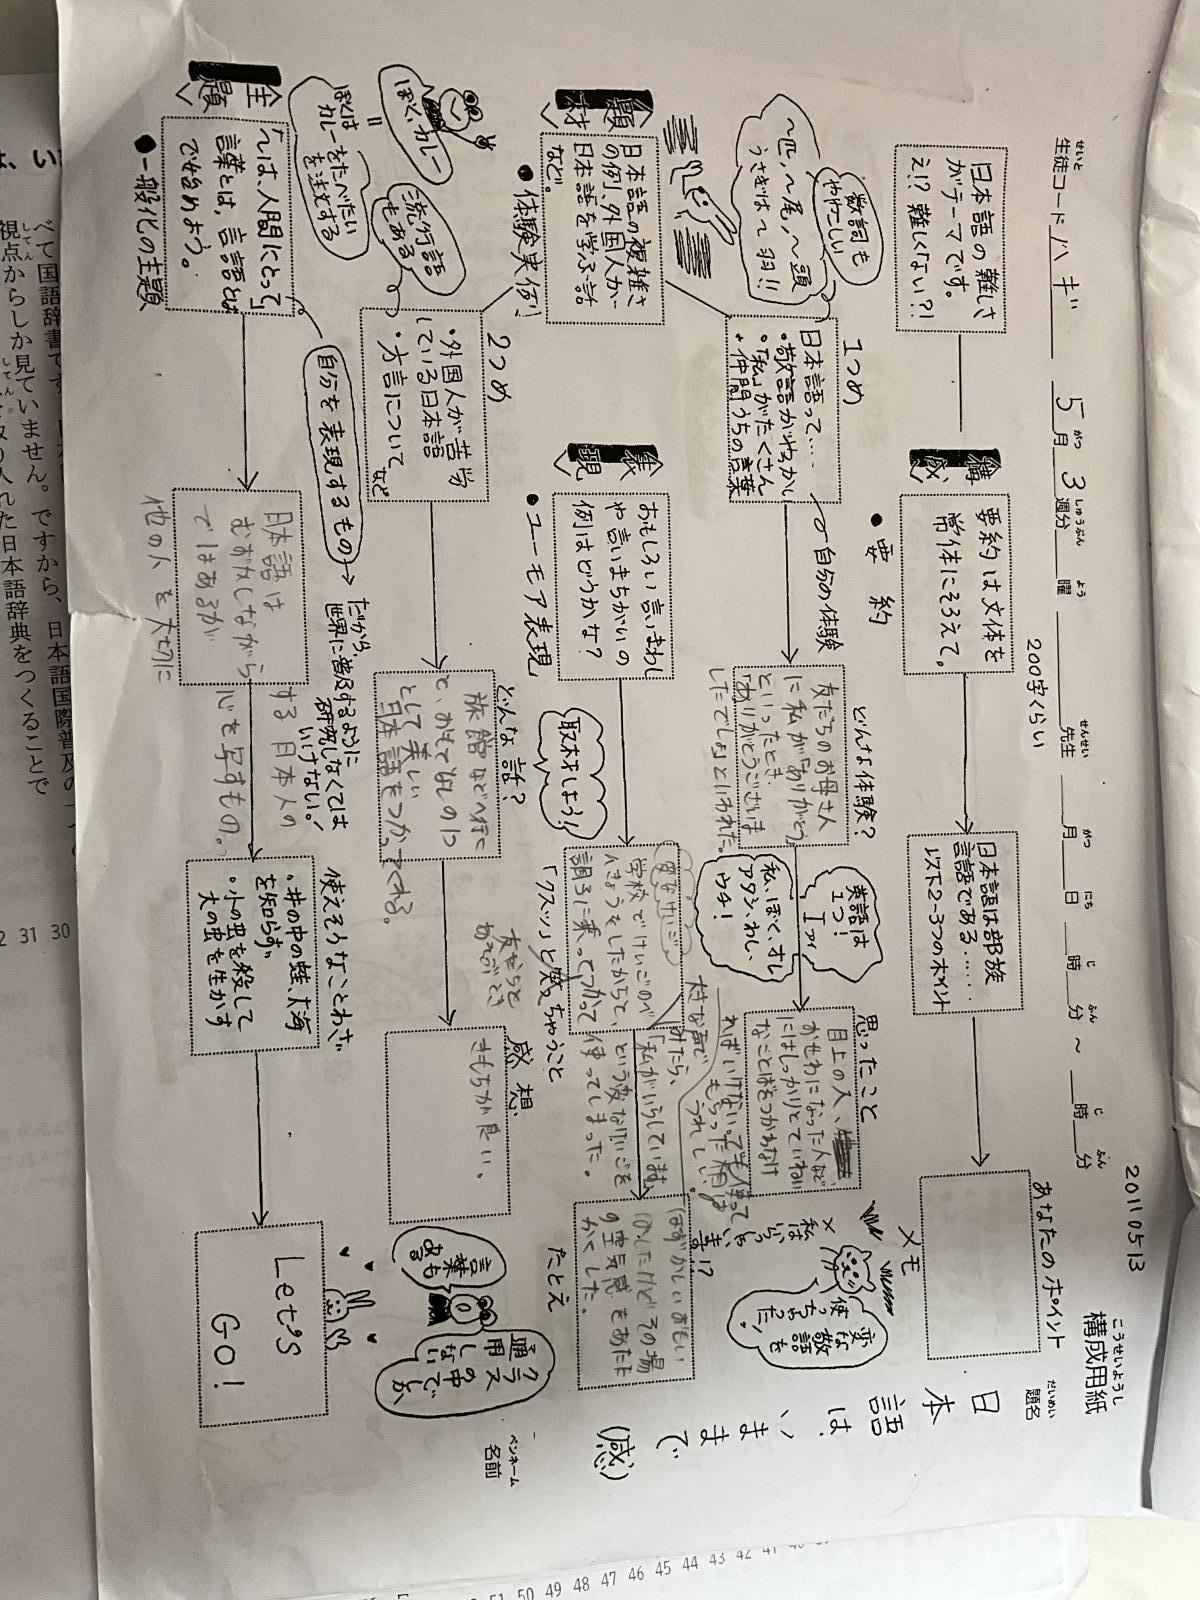 構成用紙
こうせいようし
20110513
生徒コード ハギ 5月3週分 曜 先生 月 日 時 分 〜 時 分
題名
だいめい
日本語は、いままで(感)
ペンネーム
名前
日本語の難しさ
がテーマです。
え!?難しくない?!
構成
200字くらい
●要約
要約は文体を
常体にそろえて。
日本語は部族
言語である……
以下2-3つのポイント
あなたのポイント
メモ
数詞も
ややこしい
〜匹、〜尾、〜頭
うさぎは〜羽!!
題材
日本語の複雑さ
の例、外国人が
日本語を学ぶ話
など。
●体験実例
1つめ
日本語って…
・敬語がむずかしい
・「私」がたくさん
・仲間うちの言葉
自分の体験
どんな体験?
友だちのお母さん
に私が「ありがとう」
といったとき
「ありがとうございま
した でしょ」といわれた。
英語は
1つ!
I
アイ
私、ぼく、オレ
アタシ、わし、
ウチ!
思ったこと
目上の人、
おせわになった人など
にはしっかりとていねい
なことばをつかわなけ
ればいけない。
変な敬語を
使っちゃった!
2つめ
・外国人が苦労
している日本語
・方言について
など
流行語
もある
ぼく、カレー
=
ぼくは
カレーをたべたい
を注文する
どんな話?
旅館などへ行く
と、おもてなしの1つ
として美しい
日本語をつかってくる。
感想
きもちが良い。
表現
おもしろい言いまわし
や言いまちがいの
例はどうかな?
●ユーモア表現
取材しよう!
「クスッ」と笑っちゃうこと
変なけいご
学校でけいごのべ
んきょうをしたからと、
調子に乗ってつかって
みたら、
「私がいらしています」
という変なけいごを
使ってしまった。
たとえ
はずかしいおもい
をしたけどその場
の空気感をあたた
かくした。
クラス
の中でしか
通用しない
言葉も
ある
主題
「〜は、人間にとって」
言葉とは、言語とは
で始めよう。
●一般化の主題
自分を表現するもの→だから、
世界に普及するように
研究しなくては
いけない!
日本語は
むずかしながら
ではあるが
他の人を大切に
する日本人の
心を写すもの。
使えそうなことわざ
・井の中の蛙、大海
を知らず
・小の虫を殺して
大の虫を生かす
Let's
GO!
べて国語辞書です。
視点からしか見ていません。ですから、日本語国際普及の
日本語辞典をつくることで
31 30
50 49 48 47 46 45 44 43 42 41